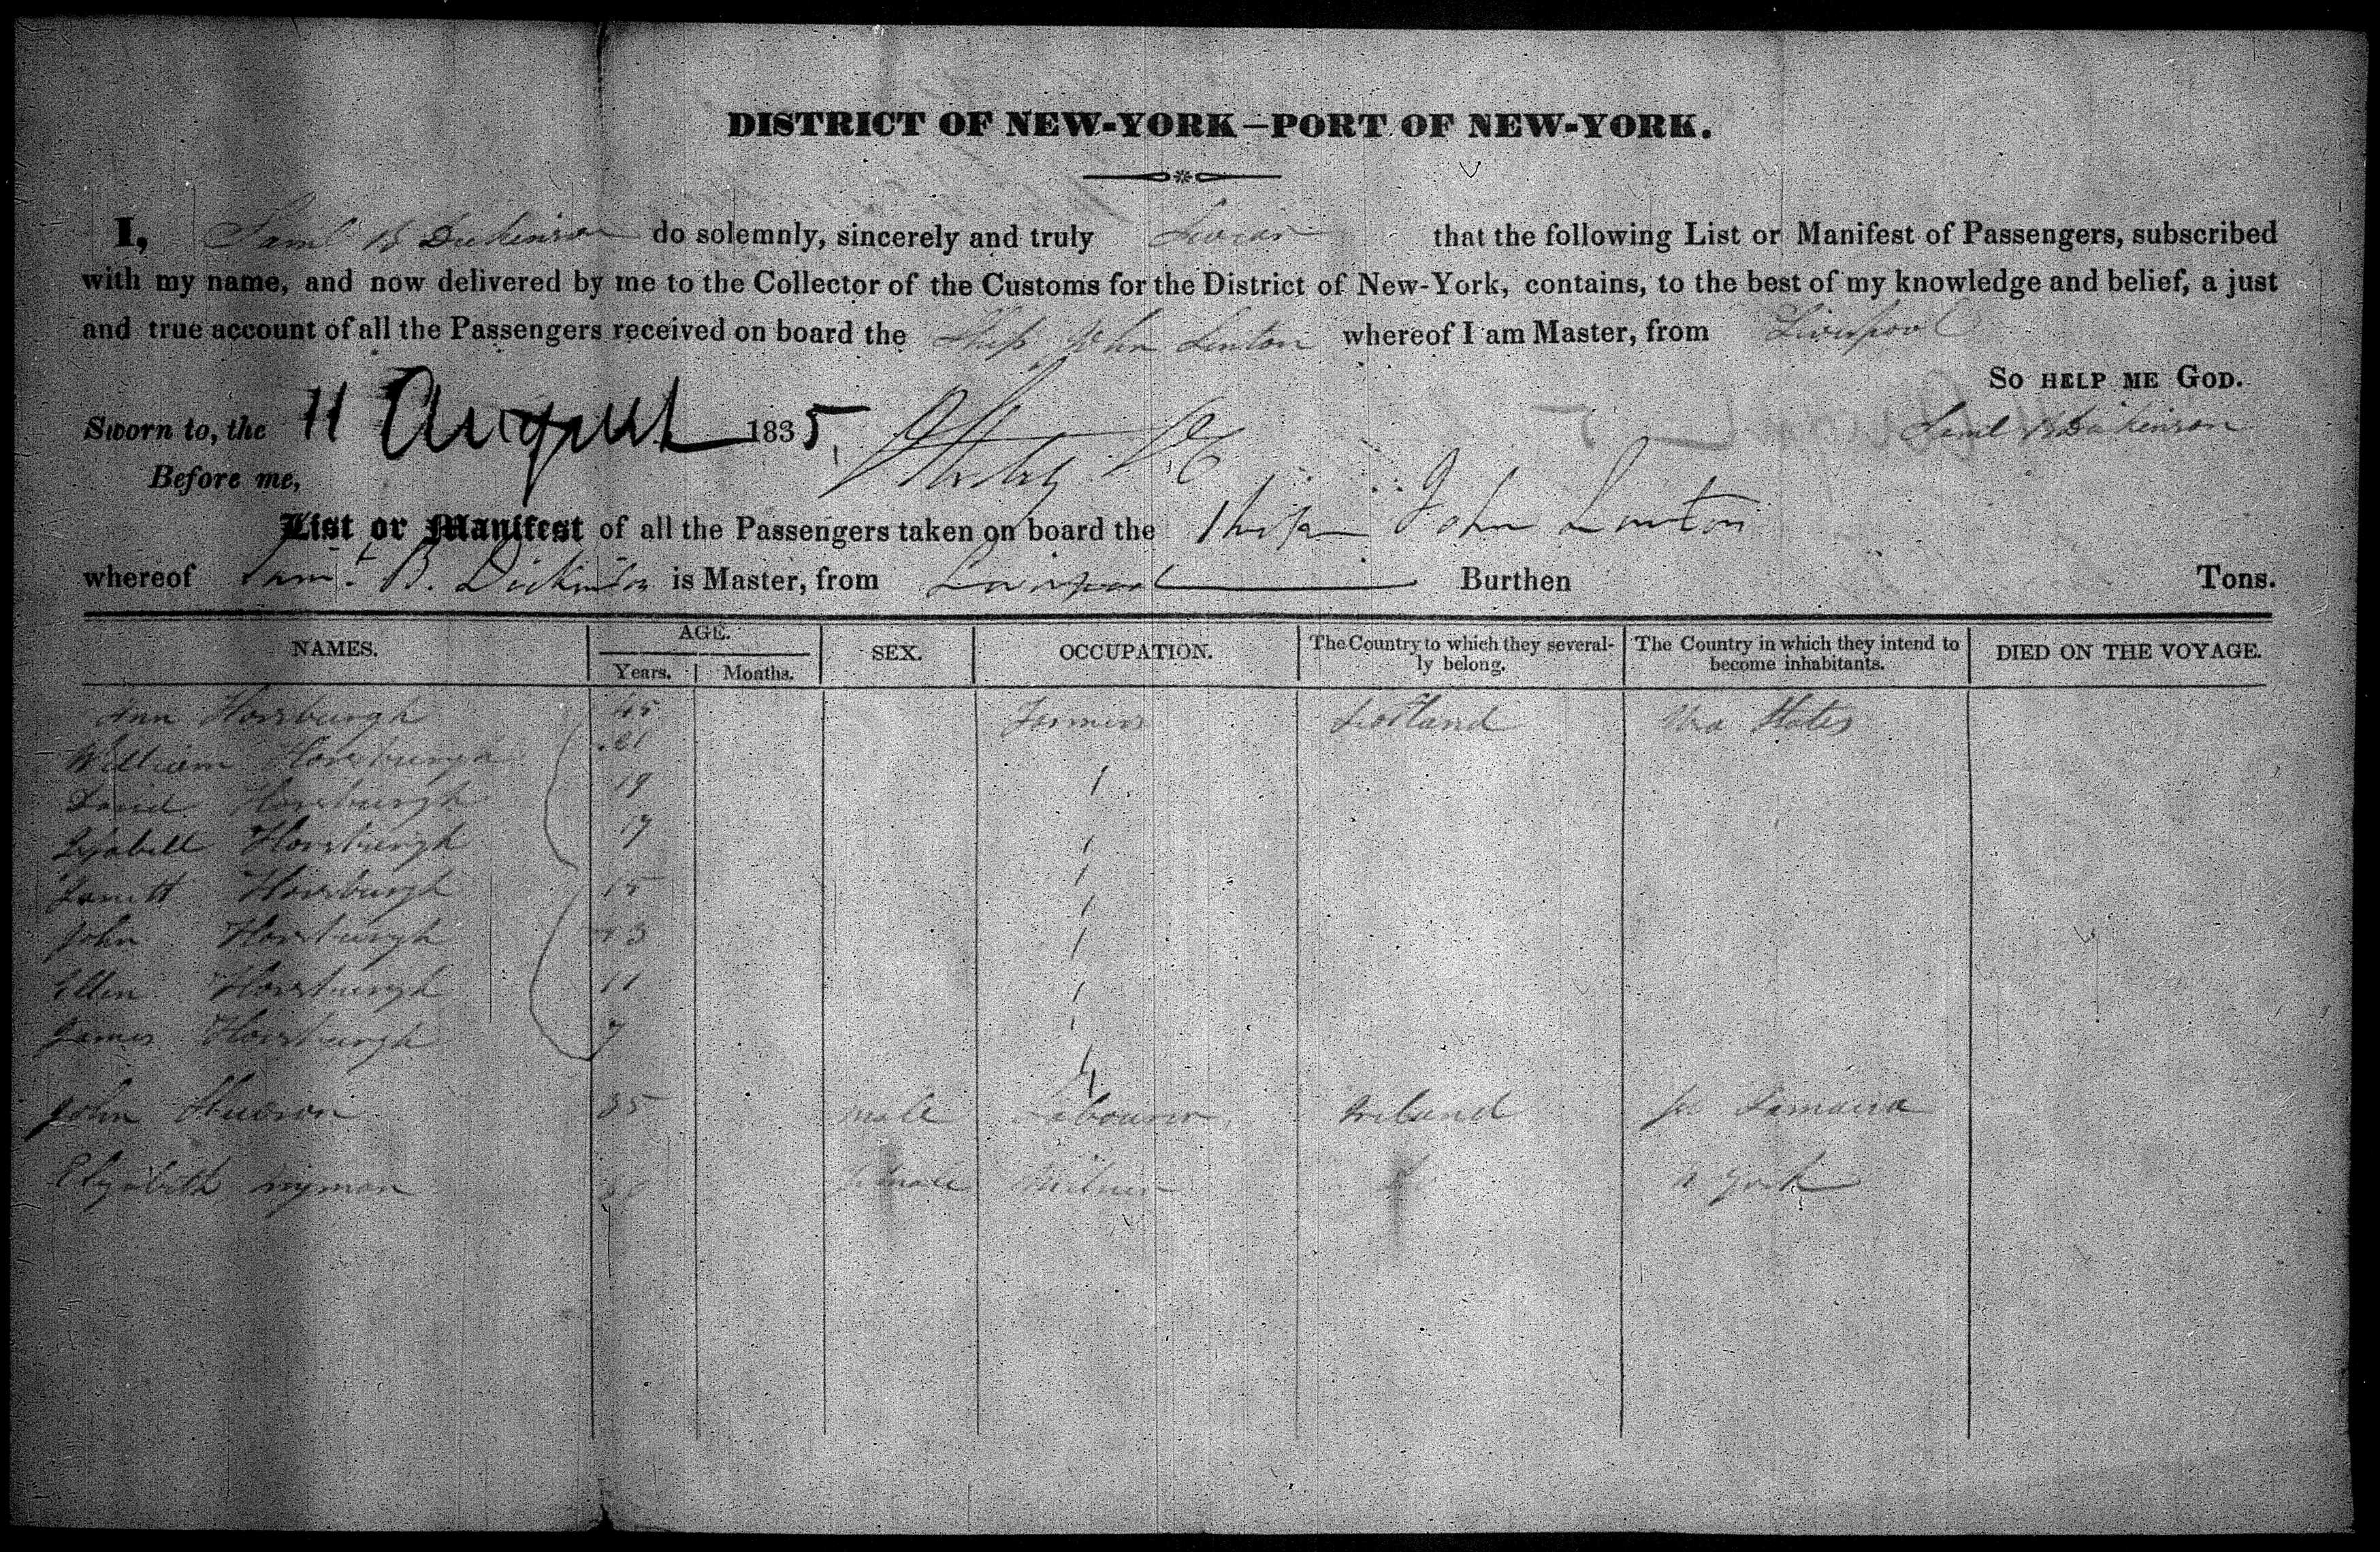 DISTRICT OF NEW-YORK—PORT OF NEW-YORK.
I, Saml B Dickinson do solemnly, sincerely and truly Swear that the following List or Manifest of Passengers, subscribed
with my name, and now delivered by me to the Collector of the Customs for the District of New-York, contains, to the best of my knowledge and belief, a just
and true account of all the Passengers received on board the Ship John Linton whereof I am Master, from Liverpool
So help me God.
Sworn to, the 11 August 1835, Saml B Dickinson
Before me,
List or Manifest of all the Passengers taken on board the Ship John Linton
whereof Saml B. Dickinson is Master, from Liverpool Burthen Tons.
NAMES. AGE. Years. Months. SEX. OCCUPATION. The Country to which they severally belong. The Country in which they intend to become inhabitants. DIED ON THE VOYAGE.
Ann Horsburgh 45 Farmers Scotland States
William Horsburgh 21
David Horsburgh 19
Isabell Horsburgh 17
Horsburgh 15
John Horsburgh 13
Ellen Horsburgh 11
James Horsburgh 7
John 35 male Labourer Ireland Jamaica
Elizabith 30 female Do N York